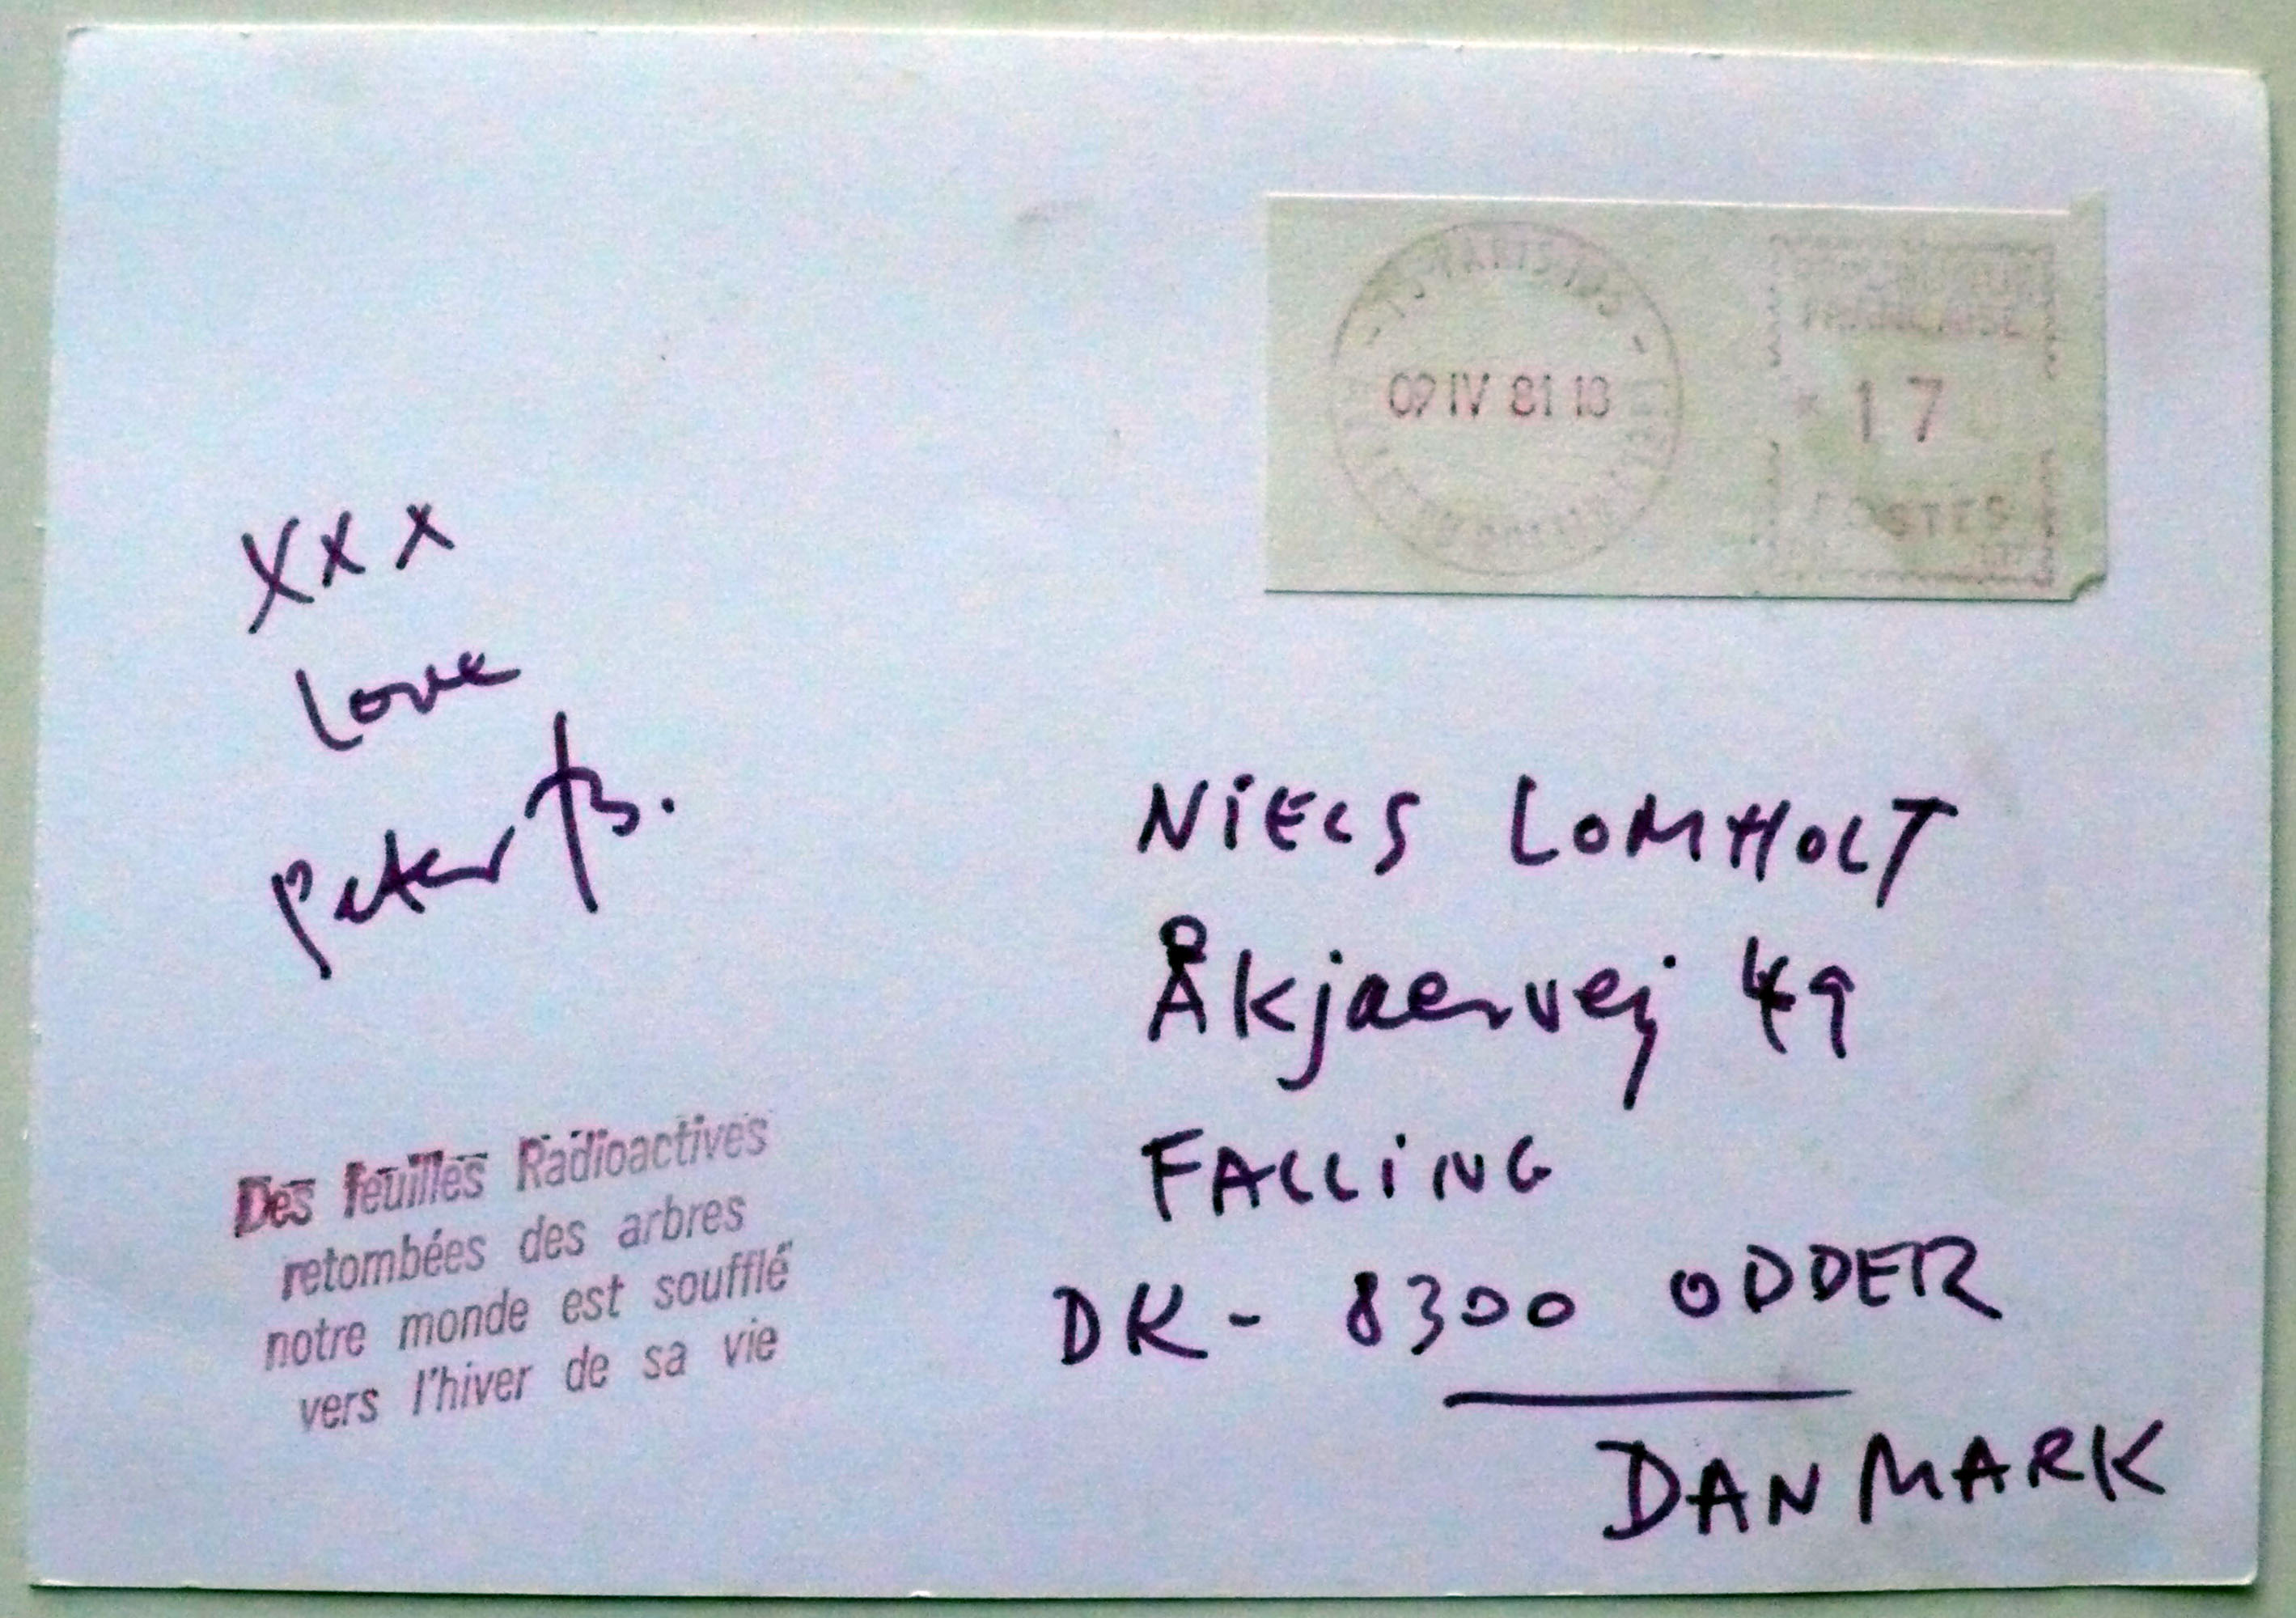 75 PARIS 105
09 IV 81 18
FRANCAISE
17
POSTES
xxx
Love
Peter B.
NiELS LOMHOLT
Åkjaervej 49
FALLiNG
DK - 8300 ODDER
DANMARK
Des feuilles Radioactives
retombées des arbres
notre monde est soufflé
vers l'hiver de sa vie